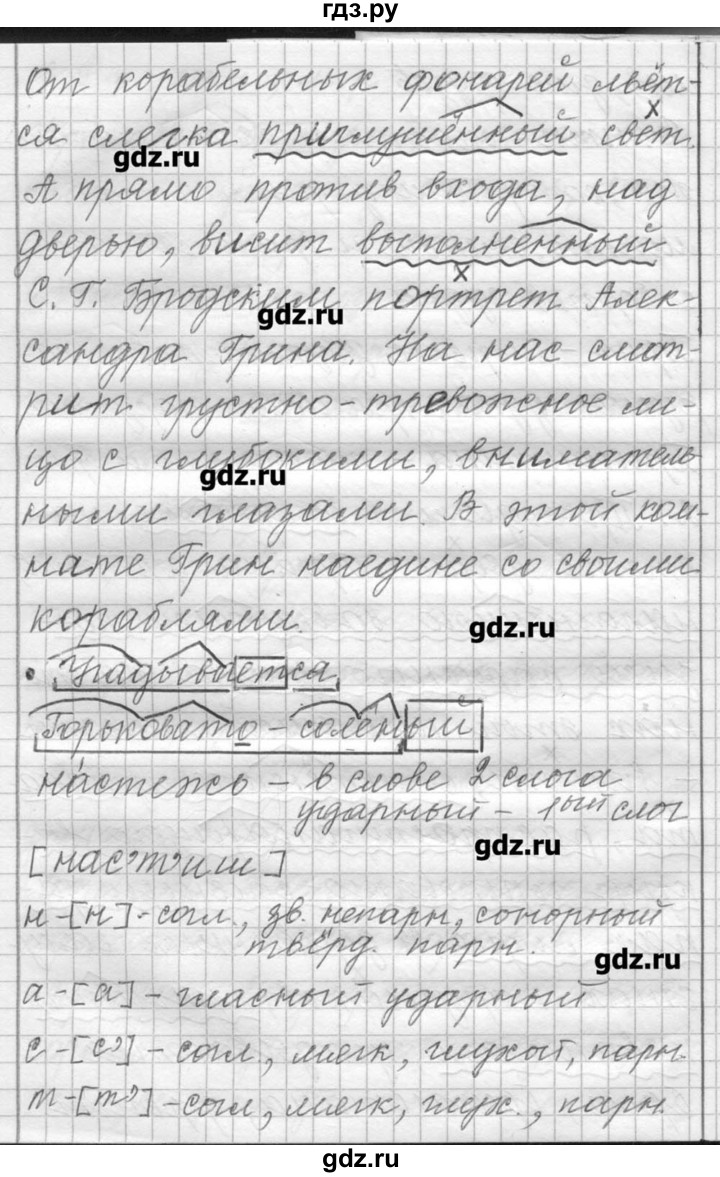 гдз.ру
От корабельных фонарей льёт-
ся слегка приглушённый свет.
gdz.ru
А прямо против входа, над
дверью, висит выполненный
С. Г. Бродским портрет Алек-
gdz.ru
сандра Грина. На нас смот-
рит грустно-тревожное ли-
цо с глубокими, вниматель-
gdz.ru
ными глазами. В этой ком-
нате Грин наедине со своими
кораблями.
gdz.ru
Угадывается
Горьковато-солёный
настежь - в слове 2 слога
ударный - 1ый слог
gdz.ru
[нас'т'иш]
н-[н]-согл., зв. непарн, сонорный
твёрд. парн.
gdz.ru
а-[а]-гласный ударный
с-[с']-согл., мягк, глухой, парн.
т-[т']-согл, мягк, глух., парн.
gdz.ru